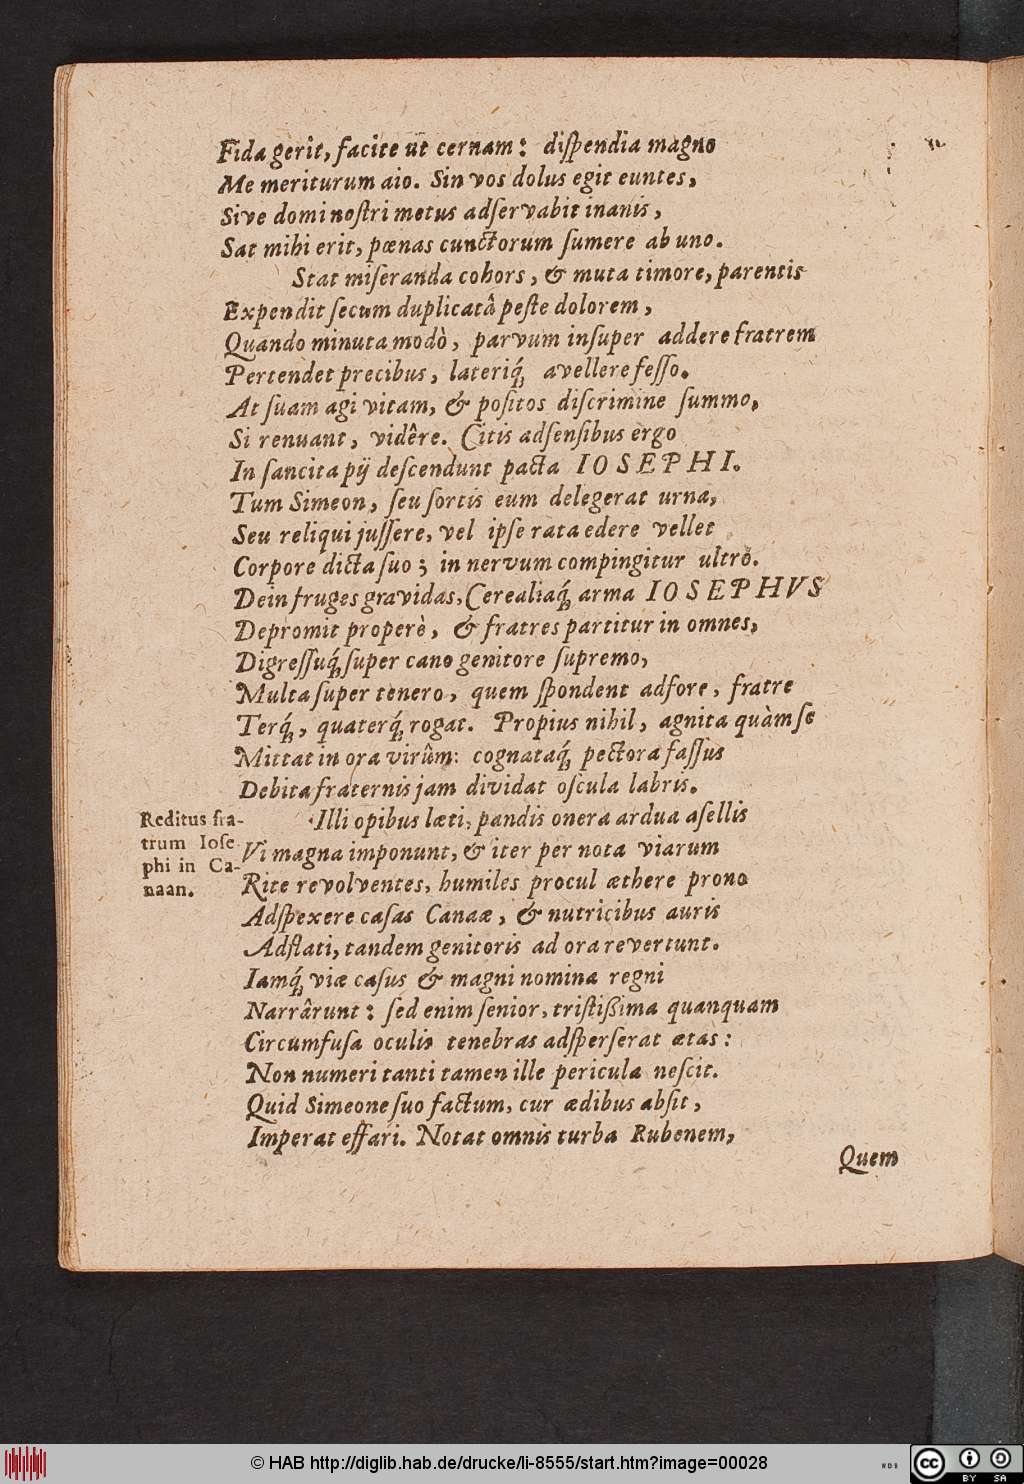 Fida gerit, facite ut cernam: diſpendia magno
Me meriturum aio. Sin vos dolus egit euntes,
Sive domi noſtri metus adſervabit inanis,
Sat mihi erit, pœnas cunctorum ſumere ab uno.
Stat miſeranda cohors, & muta timore, parentis
Expendit ſecum duplicatâ peſte dolorem,
Quando minuta modò, parvum inſuper addere fratrem
Pertendet precibus, lateriq́; avellere feſſo.
At ſuam agi vitam, & poſitos diſcrimine ſummo,
Si renuant, vidêre. Citis adſenſibus ergo
In ſancita pij deſcendunt pacta IOSEPHI.
Tum Simeon, ſeu ſortis eum delegerat urna,
Seu reliqui juſſere, vel ipſe rata edere vellet
Corpore dicta ſuo; in nervum compingitur ultrò.
Dein fruges gravidas, Cerealiaq́; arma IOSEPHVS
Depromit properè, & fratres partitur in omnes,
Digreſſuq́; ſuper cano genitore ſupremo,
Multa ſuper tenero, quem ſpondent adfore, fratre
Terq́;, quaterq́; rogat. Propius nihil, agnita quàm ſe
Mittat in ora virûm: cognataq́; pectora faſſus
Debita fraternis jam dividat oſcula labris.
Reditus fra-
trum Ioſe-
phi in Ca-
naan.
Illi opibus læti, pandis onera ardua aſellis
Vi magna imponunt, & iter per nota viarum
Rite revolventes, humiles procul æthere prono
Adſpexere caſas Canaæ, & nutricibus auris
Adflati, tandem genitoris ad ora revertunt.
Iamq́; viæ caſus & magni nomina regni
Narrârunt: ſed enim ſenior, triſtißima quanquam
Circumfuſa oculis tenebras adſperſerat ætas:
Non numeri tanti tamen ille pericula neſcit.
Quid Simeone ſuo factum, cur ædibus abſit,
Imperat effari. Notat omnis turba Rubenem,
Quem
© HAB http://diglib.hab.de/drucke/li-8555/start.htm?image=00028
WDB
cc
BY SA